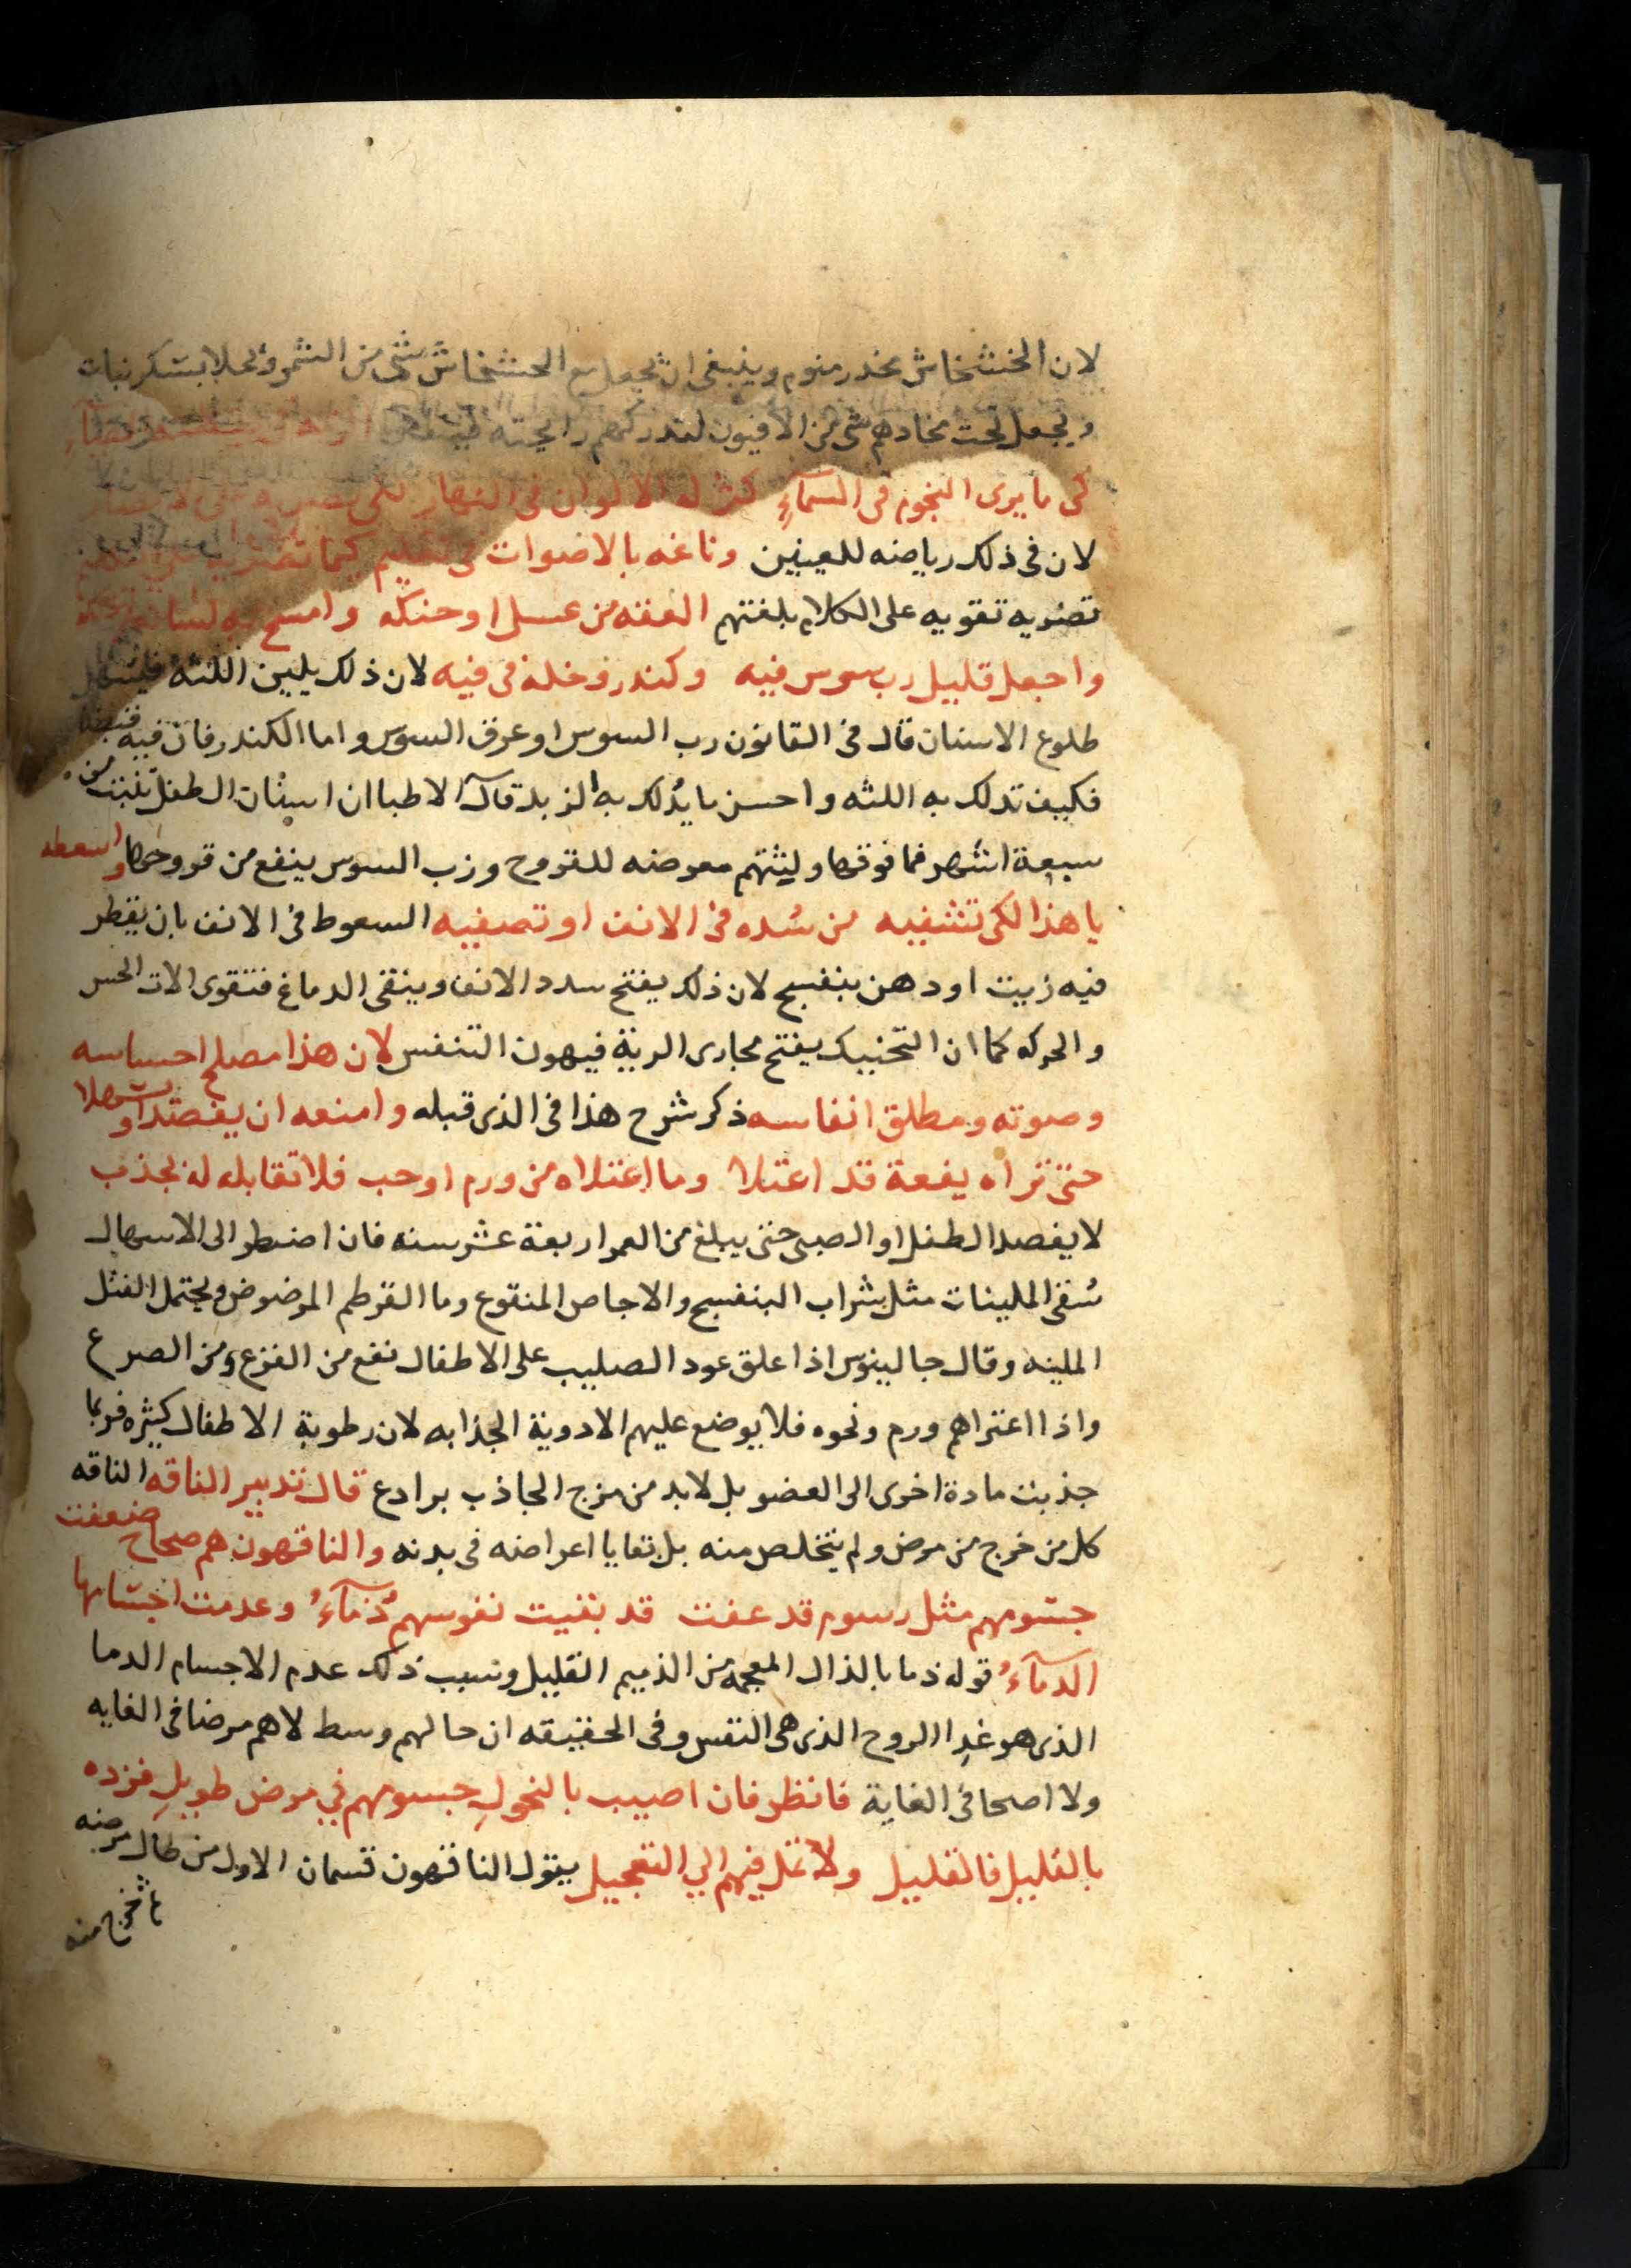 لان الخشخاش مخدر منوم وينبغى ان يجعل مع الخشخاش شى من الشمر ويحلا بسكر نبات
ويجعل تحت مخادهم شى من الافيون لتدركهم رايحته
كى ما يرى النجوم فى السمآءِ كثر له الالوان فى النهار
لان فى ذلك رياضه للعينين وناغه بالاصوات فى تعليم كيما تضريه
تضريه تقويه على الكلام بلغتهم العقه من عسل او حنكه وامسح به لسانه
واجعل قليل رب سوس فيه وكندر وخله فى فيه لان ذلك يلين اللثه فيسهل
طلوع الاسنان قال فى القانون رب السوس او عرق السوس واما الكندر فان فيه قبضا
فكيف تدلك به اللثه واحسن ما يدلك به الزبد قال الاطبا ان اسنان الطفل تنبت من
سبعة اشهر فما فوقها ولثتهم معرضه للقروح ورب السوس ينفع من قروحها واسعطه
يا هذا لكى تشفيه من سُده فى الانف او تصفيه السعوط فى الانف بان يقطر
فيه زيت او دهن بنفسج لان ذلك يفتح سدد الانف وينقى الدماغ فتقوى الات الحس
والحركه كما ان التحنيك يفتح مجارى الرية فيهون التنفس لان هذا مصلح احساسه
وصوته ومطلق انفاسه ذكر شرح هذا فى الذى قبله وامنعه ان يفصد او يسهلا
حتى تراه يفعة قد اعتلا وما اعتلاه من ورم او حب فلا تقابله له بجذب
لا يفصد الطفل او الصبى حتى يبلغ من العمر اربعة عشر سنه فان اضطر الى الاسهال
سُقى الملينات مثل شراب البنفسج والاجاص المنقوع وما القرطم المرضوض ويحتمل الفتل
الملينه وقال جالينوس اذا علق عود الصليب على الاطفال نفع من الفزع ومن الصرع
واذا اعتراهم ورم ونحوه فلا يوضع عليهم الادوية الجذابه لان رطوبة الاطفال كثيره فربما
جذبت مادة اخرى الى العضو بل لابد من مزج الجاذب برادع قال تدبير الناقه الناقه
كل من خرج من مرض ولم يتخلص منه بل بقايا اعراضه فى بدنه والناقهون هم صحاح ضعفت
جسومهم مثل رسوم قد عفت قد بقيت نفوسهم ذمآءُ وعدمت اجسامها
الدمآءُ قوله ذما بالذال المعجمه من الذميم القليل وسبب ذلك عدم الاجسام الدما
الذى هو غدا الروح الذى هى النفس وفى الحقيقه ان حالهم وسط لا هم مرضا فى الغايه
ولا اصحا فى الغاية فانظر فان اصيب بالنحولِ جسومهم في مرض طويلِ فزده
بالقليل فالقليل ولا تمل فيهم الي التعجيل يقول الناقهون قسمان الاول من طال مرضه
ثم خرج منه